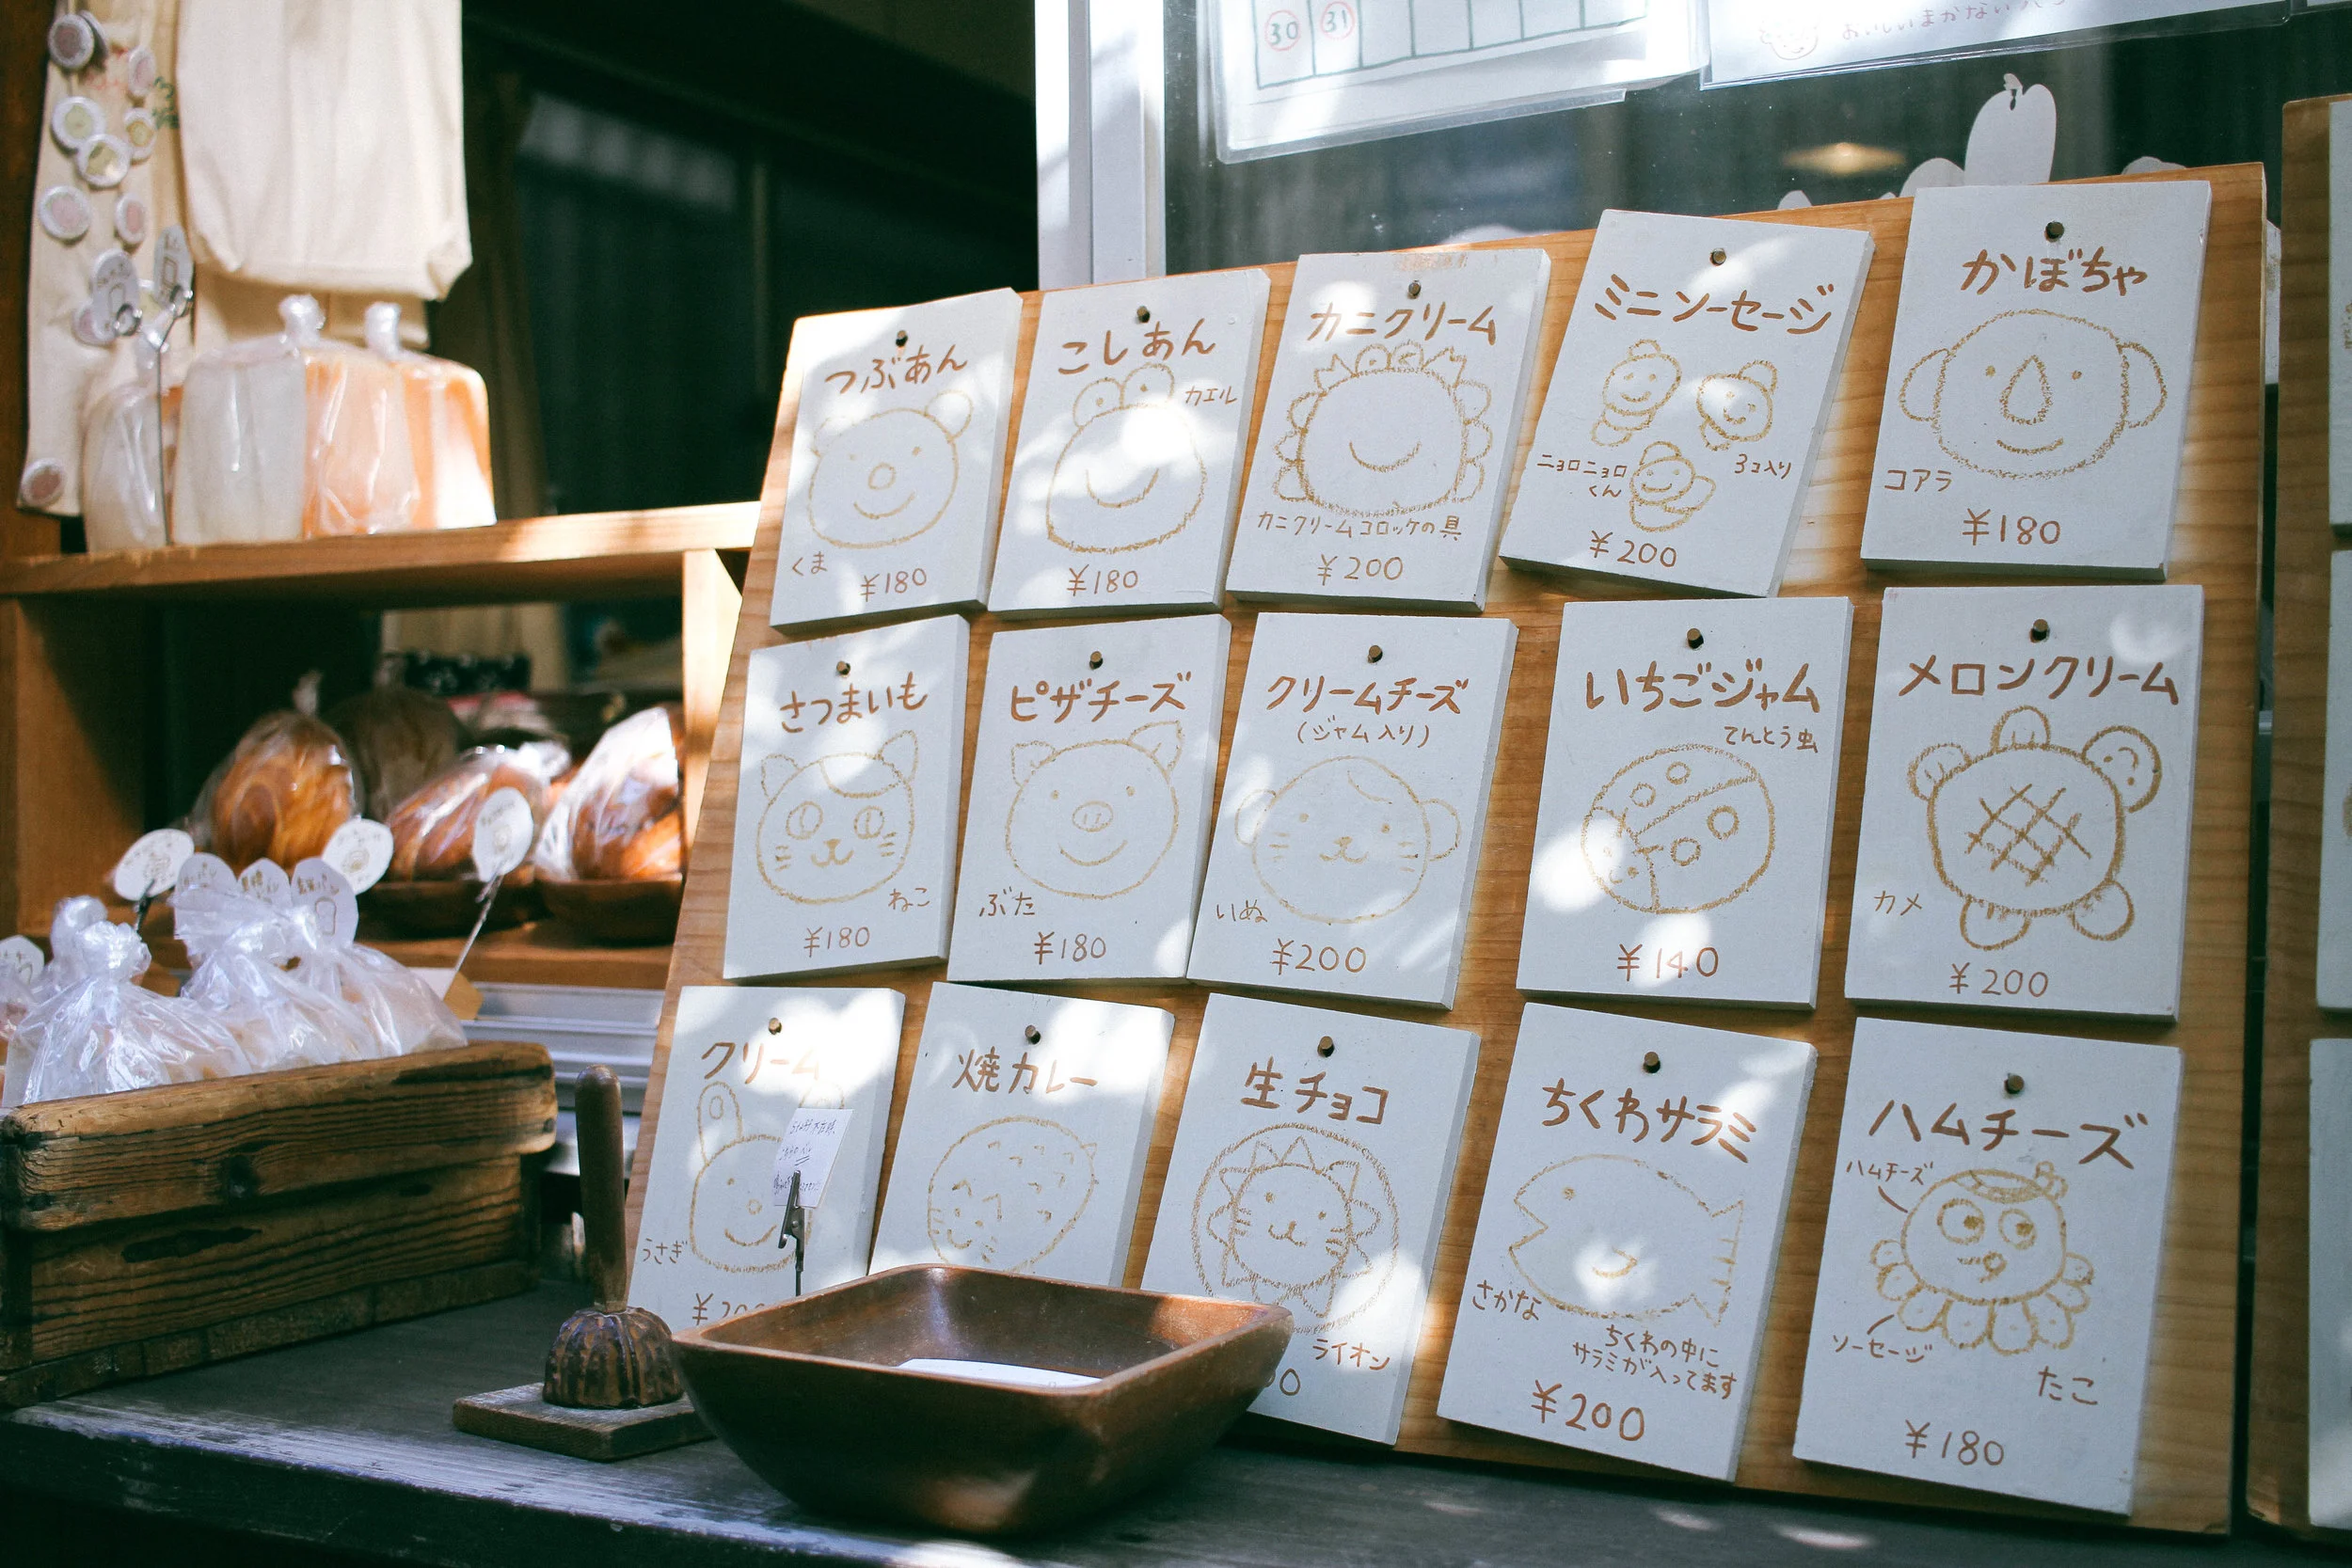 30 31
おいしいまかないつくろ
つぶあん
くま
¥180
こしあん
カエル
¥180
カニクリーム
カニクリームコロッケの具
¥200
ミニソーセージ
ニョロニョロ
くん
3コ入り
¥200
かぼちゃ
コアラ
¥180
さつまいも
ねこ
¥180
ピザチーズ
ぶた
¥180
クリームチーズ
(ジャム入り)
いぬ
¥200
いちごジャム
てんとう虫
¥140
メロンクリーム
カメ
¥200
クリーム
うさぎ
¥200
焼カレー
生チョコ
ライオン
ちくわサラミ
さかな
ちくわの中に
サラミが入ってます
¥200
ハムチーズ
ハムチーズ
ソーセージ
たこ
¥180